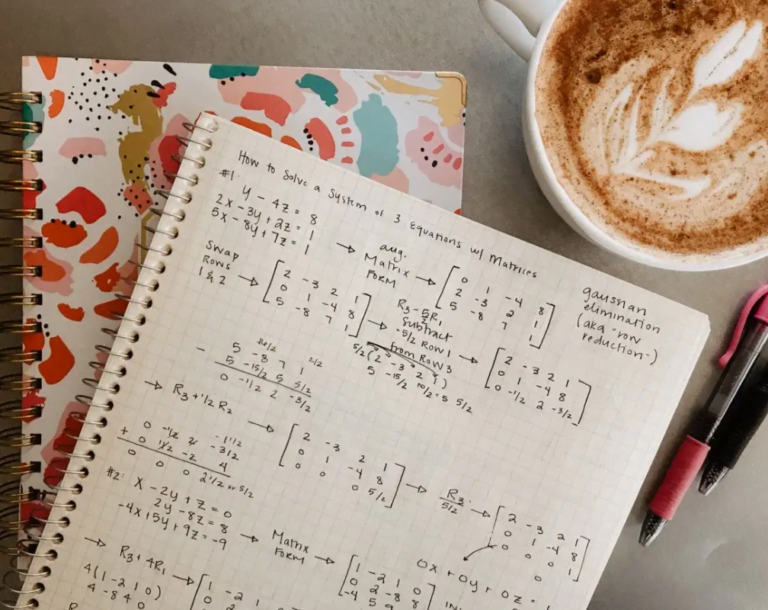 How to Solve a System of 3 Equations w/ Matrices
#1:
y - 4z = 8
2x - 3y + 2z = 1
5x - 8y + 7z = 1
→ aug. Matrix FORM →
[ 0 1 -4 8
2 -3 2 1
5 -8 7 1 ]
gaussian
elimination
(aka row
reduction)
Swap
Rows
1 & 2 →
[ 2 -3 2 1
0 1 -4 8
5 -8 7 1 ]
→
Subtract
-5/2 Row 1
from Row 3 →
[ 2 -3 2 1
0 1 -4 8
0 -1/2 2 -3/2 ]
5/2 (2 -3 2 1)
5 -15/2 10/2=5 5/2
- 5 -8 7 1
5 -15/2 5 5/2
0 -1/2 2 -3/2
→ R3 + 1/2 R2 →
[ 2 -3 2 1
0 1 -4 8
0 0 0 5/2 ]
→ R3 / 5/2 →
[ 2 -3 2 1
0 1 -4 8
0 0 0 1 ]
0 -1/2 2
+ 0 1/2 -2 4
0 0 0 2 1/2 or 5/2
0x + 0y + 0z = 1
#2:
x - 2y + z = 0
2y - 8z = 8
-4x + 5y + 9z = -9
→ Matrix FORM →
[ 1 -2 1 0
0 2 -8 8
-4 5 9
→ R3 + 4R1 →
4(1 -2 1 0)
4 -8 4 0
[ 1 -2 1
0 2